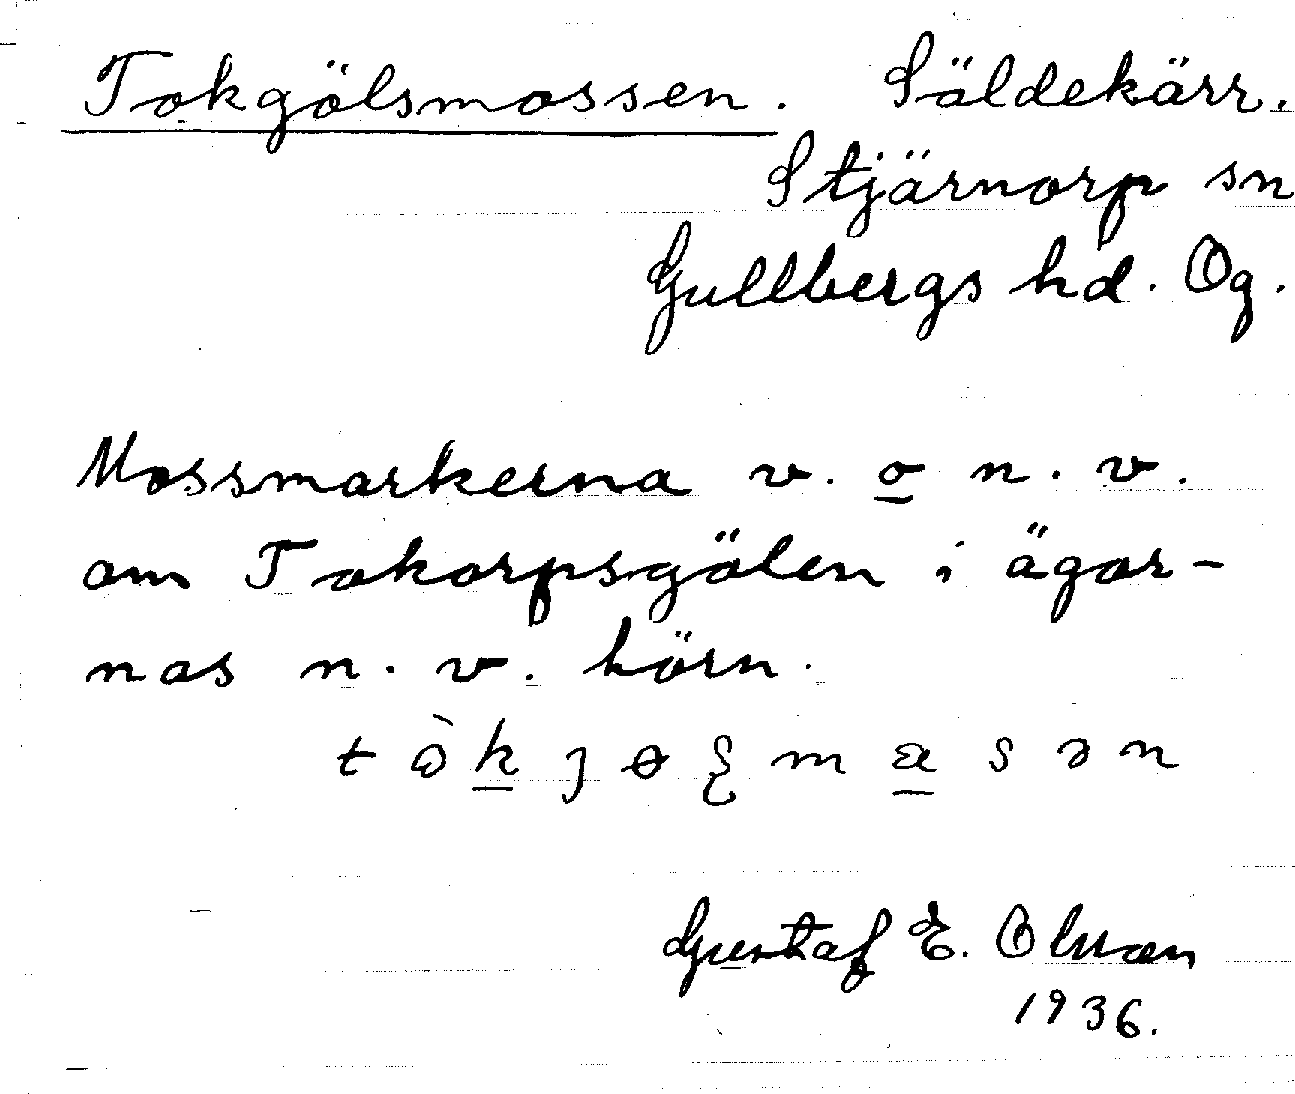 Tokgölsmossen. Säldekärr.
Stjärnorp sn
Gullbergs hd. Ög.
Mossmarkerna v. o n. v.
om Tokorpsgölen i ägor-
nas n. v. hörn.
Gustaf E. Olman
1936.